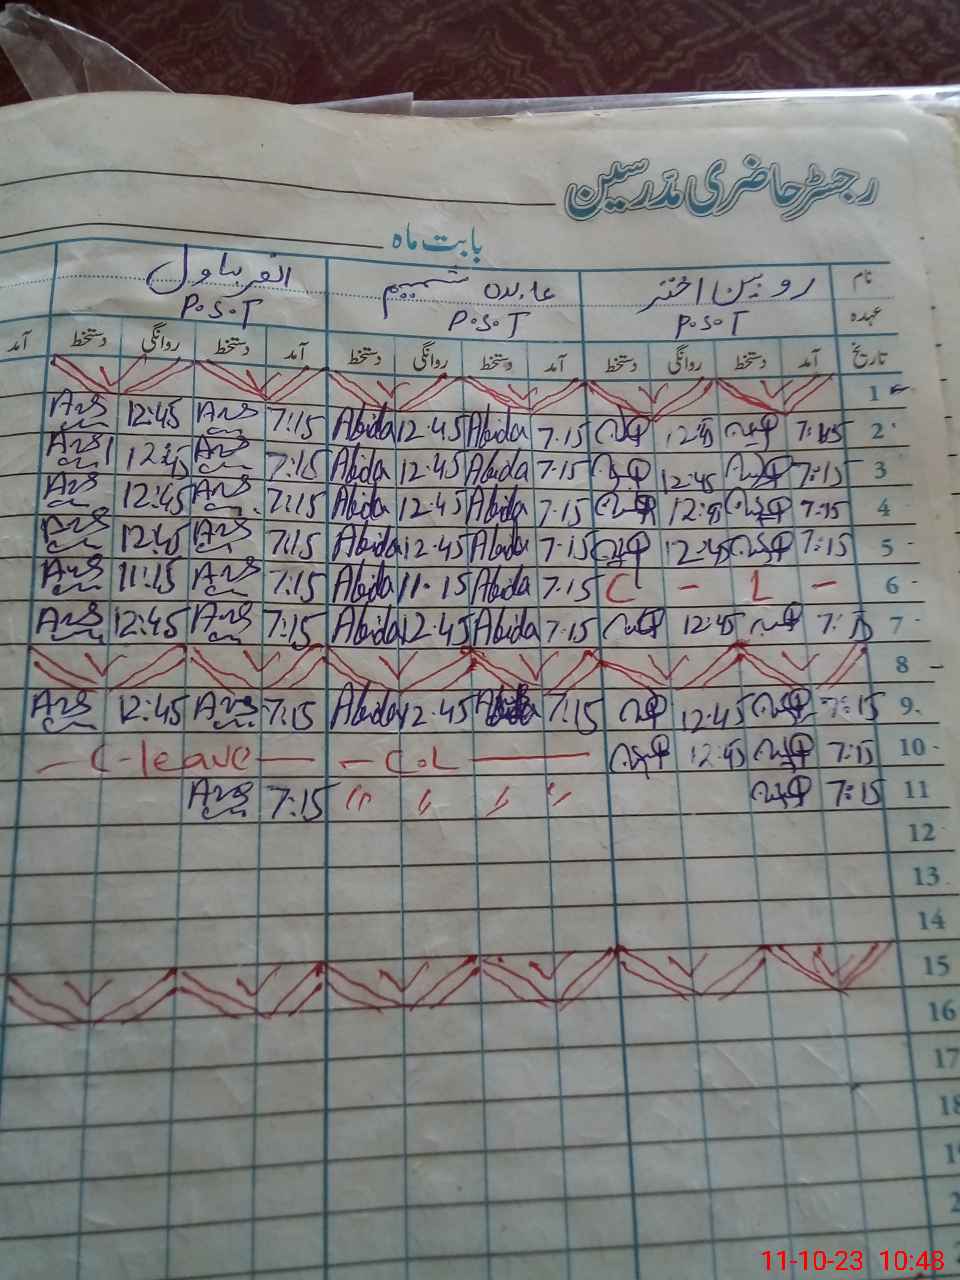 رجسٹر حاضری مدرسین
بابت ماہ
نام روبین اختر عابدہ شمیم
عہدہ P.S.T P.S.T P.S.T
تاریخ آمد دستخط روانگی دستخط آمد دستخط روانگی دستخط آمد دستخط روانگی دستخط آمد
1
2 7:15 12:45 7.15 Abida 12.45 Abida 7:15 12:45
3 7:15 12:45 7.15 Abida 12.45 Abida 7:15 12:45
4 7:15 7.15 Abida 12.45 Abida 7:15 12:45
5 7:15 12:45 7.15 Abida 12.45 Abida 7:15 12:45
6 C - L - 7.15 Abida 11.15 Abida 7:15 11:15
7 7:15 12:45 7.15 Abida 12.45 Abida 7:15 12:45
8
9 7:15 12:45 7:15 12.45 Abida 7:15 12:45
10 7:15 12:45 — C.L — — C-leave —
11 7:15 〃 〃 〃 〃 7:15
12
13
14
15
16
17
18
11-10-23 10:48